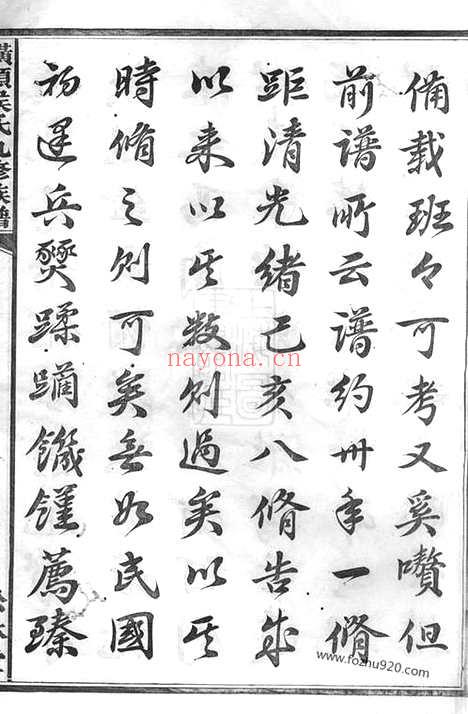 備載班々可考又奚囋但
前譜所云譜約卅年一脩
距清光緒己亥八脩告成
以来以其数則過矣以其
時脩之則可矣無如民國
初兵燹蹂躪饑饉薦臻
氏九修族譜
nayona.cn
www.fozhu920.com